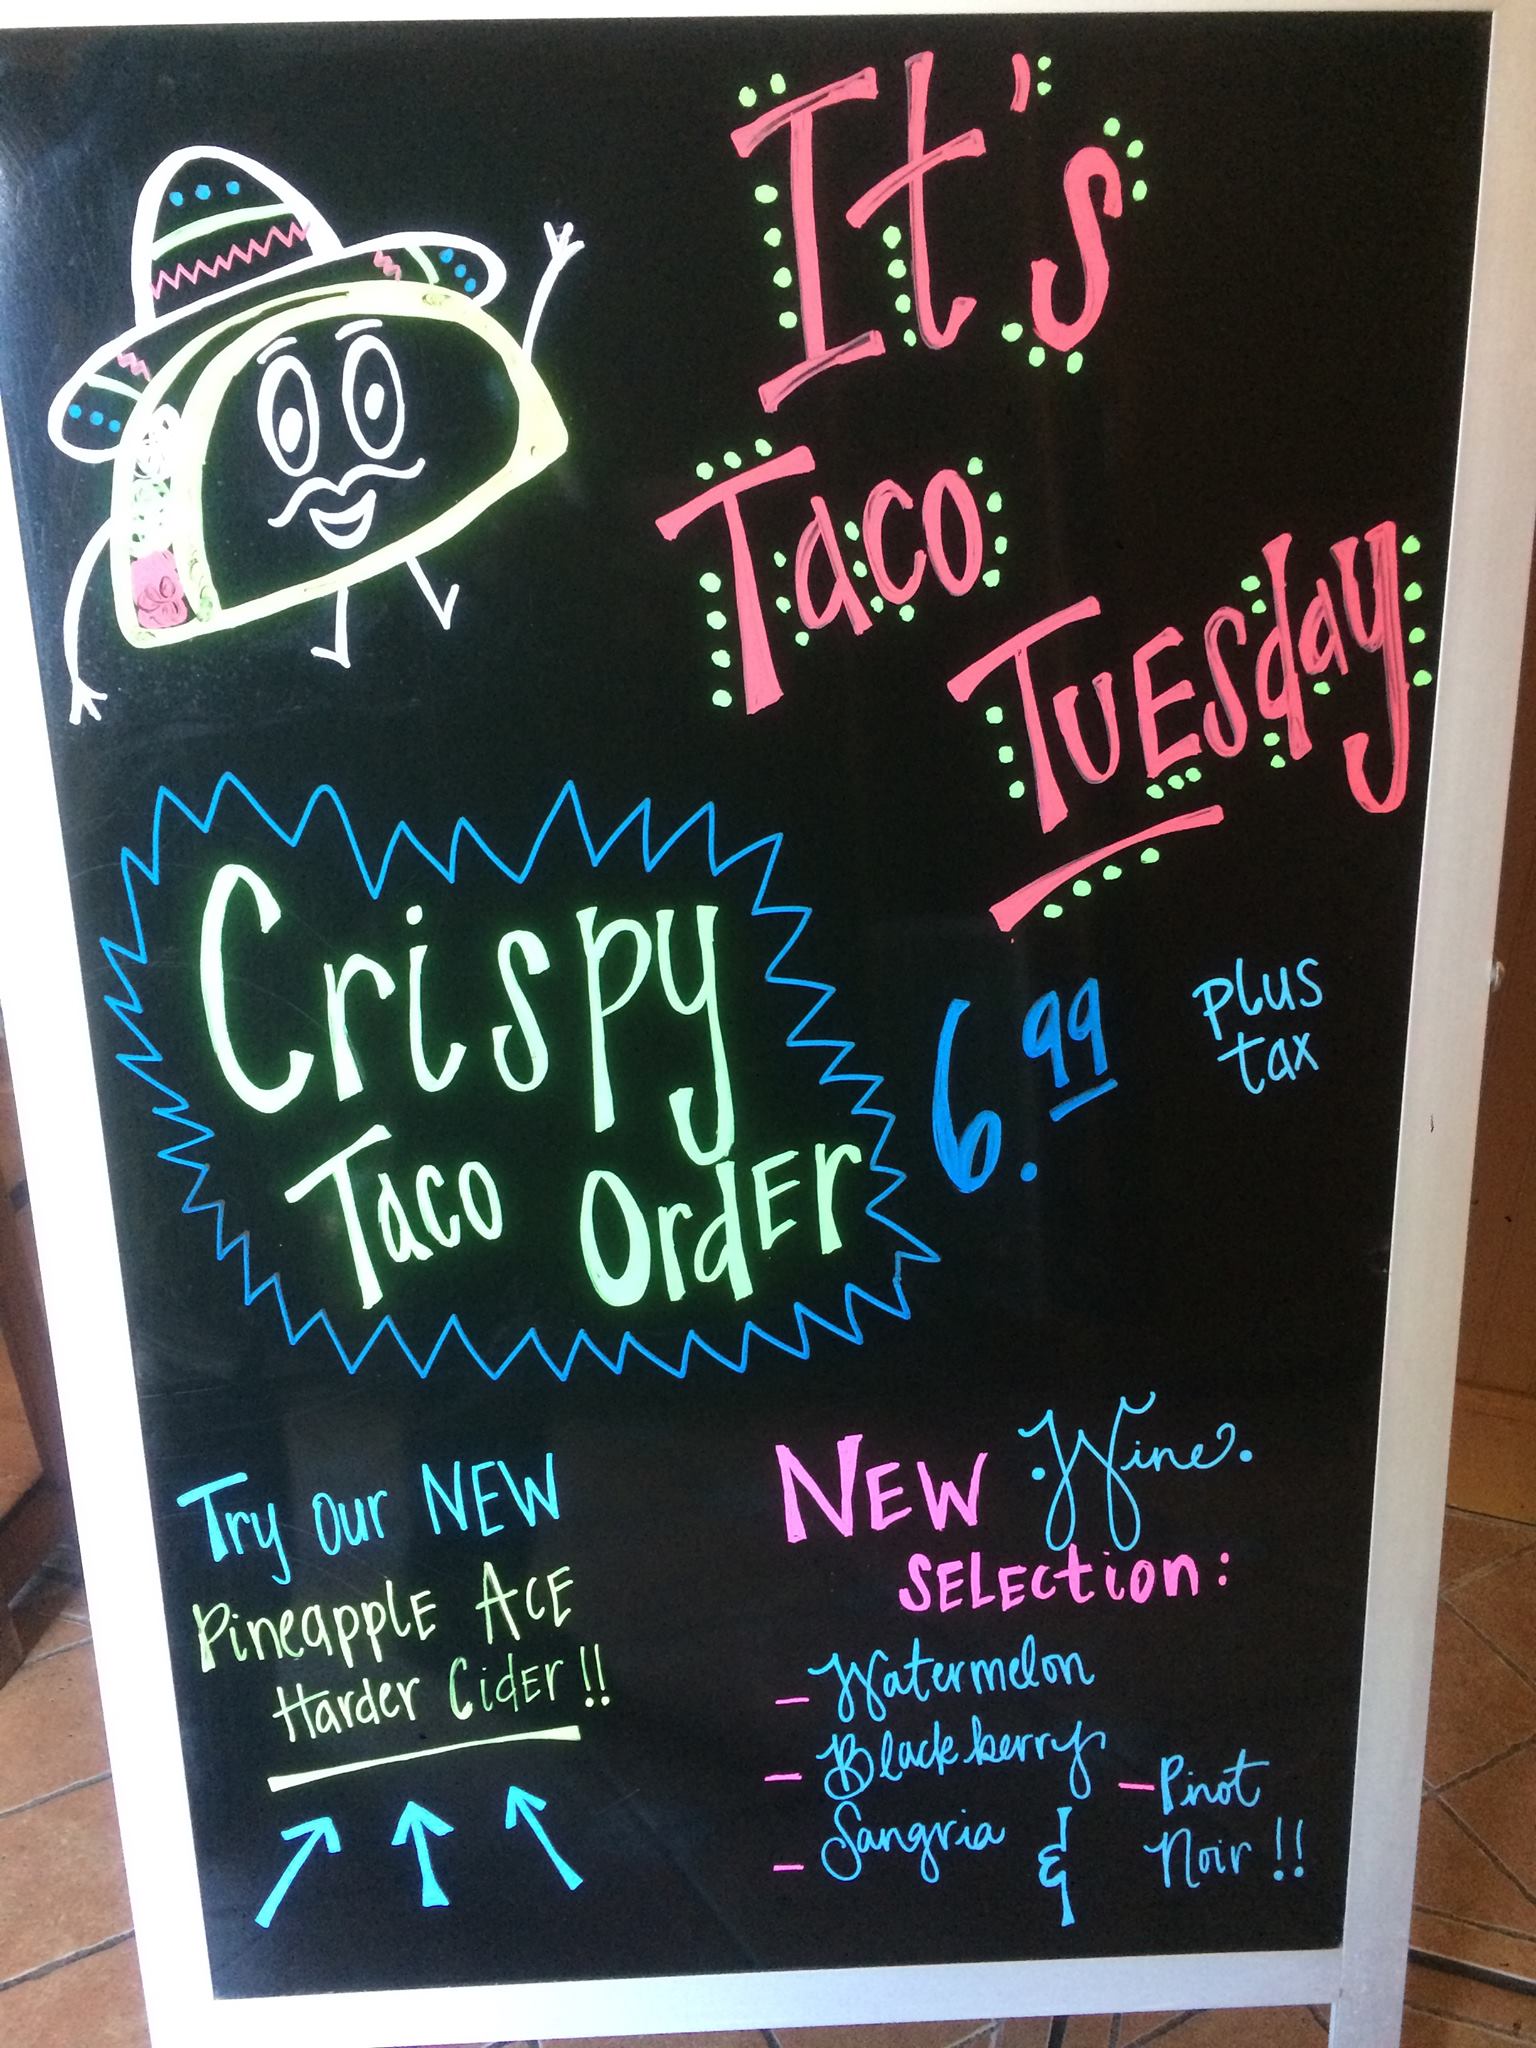 It's
Taco
Tuesday
Crispy
Taco Order
6.99
plus
tax
Try our NEW
Pineapple Ace
Harder Cider!!
New Wine
Selection:
- Watermelon
- Blackberry
- Sangria &
- Pinot
Noir!!